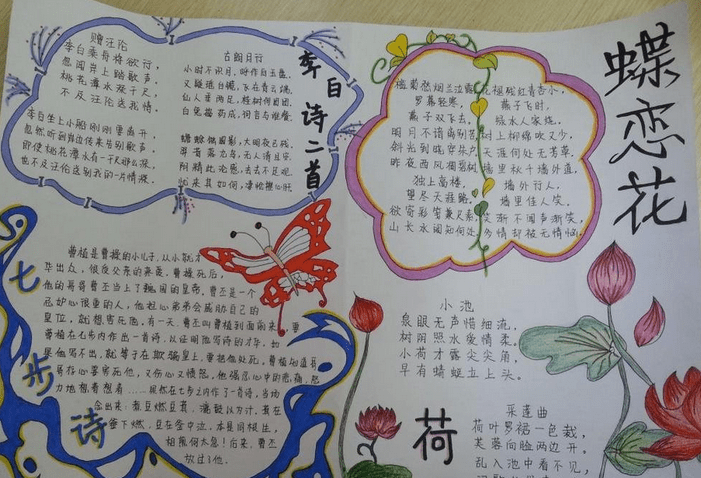 李白诗二首
赠汪伦
李白乘舟将欲行,
忽闻岸上踏歌声。
桃花潭水深千尺,
不及汪伦送我情。
李白坐上小船刚刚要离开,
忽然听到岸边传来告别歌声。
即使桃花潭水有一千尺那么深,
也不及汪伦送别我的一片情深。
古朗月行
小时不识月,呼作白玉盘。
又疑瑶台镜,飞在青云端。
仙人垂两足,桂树何团团。
白兔捣药成,问言与谁餐。
蟾蜍蚀圆影,大明夜已残。
羿昔落九乌,天人清且安。
阴精此沦惑,去去不足观。
忧来其如何,凄怆摧心肝
蝶恋花
槛菊愁烟兰泣露
罗幕轻寒,
燕子双飞去。
明月不谙离别苦
斜光到晓穿朱户
昨夜西风凋碧树
独上高楼,
望尽天涯路。
欲寄彩笺兼尺素
山长水阔知何处
花褪残红青杏小,
燕子飞时,
绿水人家绕。
枝上柳绵吹又少,
天涯何处无芳草。
墙里秋千墙外道,
墙外行人,
墙里佳人笑。
笑渐不闻声渐笑,
多情却被无情恼。
七步诗
曹植是曹操的小儿子,从小就才
华出众,很受父亲的亲爱。曹操死后,
他的哥哥曹丕当上了魏国的皇帝。曹丕是一个
忌妒心很重的人,他担心弟弟会威胁自己的
皇位,就想害死他。有一天,曹丕叫曹植到面前来,要
曹植在七步内作出一首诗,以证明他写诗的才华。如
果他写不出,就等于在欺骗皇上,要把他处死。曹植知道哥
哥存心要害死他,又伤心又愤怒。他强忍心中的悲痛,努
力地想着想着……果然在七步之内作了一首诗,当场
念出来:煮豆燃豆萁,漉豉以为汁。萁在
釜下燃,豆在釜中泣。本是同根生,
相煎何太急!后来,曹丕
放过了他。
小池
泉眼无声惜细流,
树阴照水爱情柔。
小荷才露尖尖角,
早有蜻蜓立上头。
荷
采莲曲
荷叶罗裙一色裁,
芙蓉向脸两边开。
乱入池中看不见,